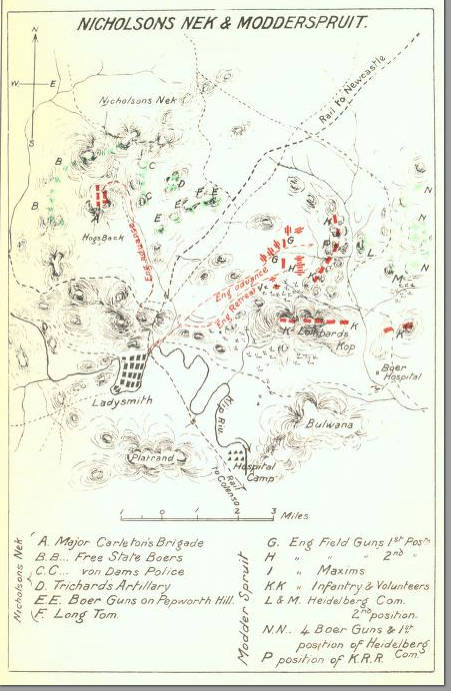 NICHOLSONS NEK & MODDERSPRUIT.
N
W E
S
Nicholsons Nek
Rail to Newcastle
B
C
D
F E
C
E
E
B
A
N
N
N
P
L
M
G
G
H
I
K
Hogs Back
Eng advance
Eng advance
Eng Retreat
K Lombards K
Kop
K
Boer
Hospital
Ladysmith
Klip Riv
Bulwana
Platrand
Hospital
Camp
Rail
to Colenso
1 0 1 2 3 Miles
Nicholsons Nek
A. Major Carleton's Brigade
B.B... Free State Boers
C.C... von Dams Police
D. Trichards Artillary
E.E. Boer Guns on Pepworth Hill.
F. Long Tom.
Modder Spruit
G. Eng Field Guns 1st Posn
H „ „ „ 2nd „
I „ Maxims
K.K „ Infantry & Volunteers
L & M. Heidelberg Com.
2nd position.
N.N.. 4 Boer Guns & 1st
position of Heidelberg
Com.
P position of K.R.R.